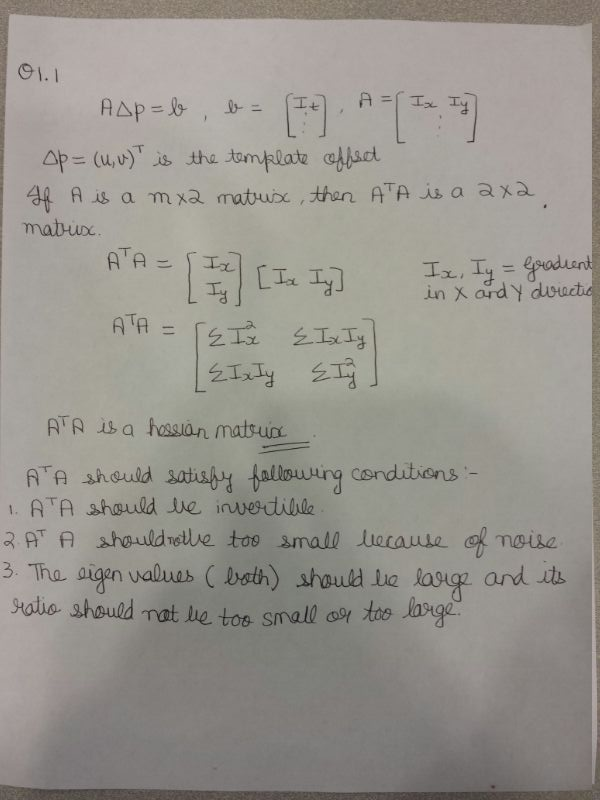 Q1.1
AΔp = b , b = [It ⋮] , A = [Ix Iy ⋮]
Δp = (u,v)ᵀ is the template offset
If A is a m×2 matrix, then AᵀA is a 2×2 .
matrix.
AᵀA = [Ix Iy] [Ix Iy]
Ix, Iy = Gradient
in X and Y directio
AᵀA = [ΣIx² ΣIxIy
ΣIxIy ΣIy²]
AᵀA is a hessian matrix .
AᵀA should satisfy following conditions:-
1. AᵀA should be invertible.
2. Aᵀ A should not be too small because of noise.
3. The eigen values ( both) should be large and its
ratio should not be too small or too large.